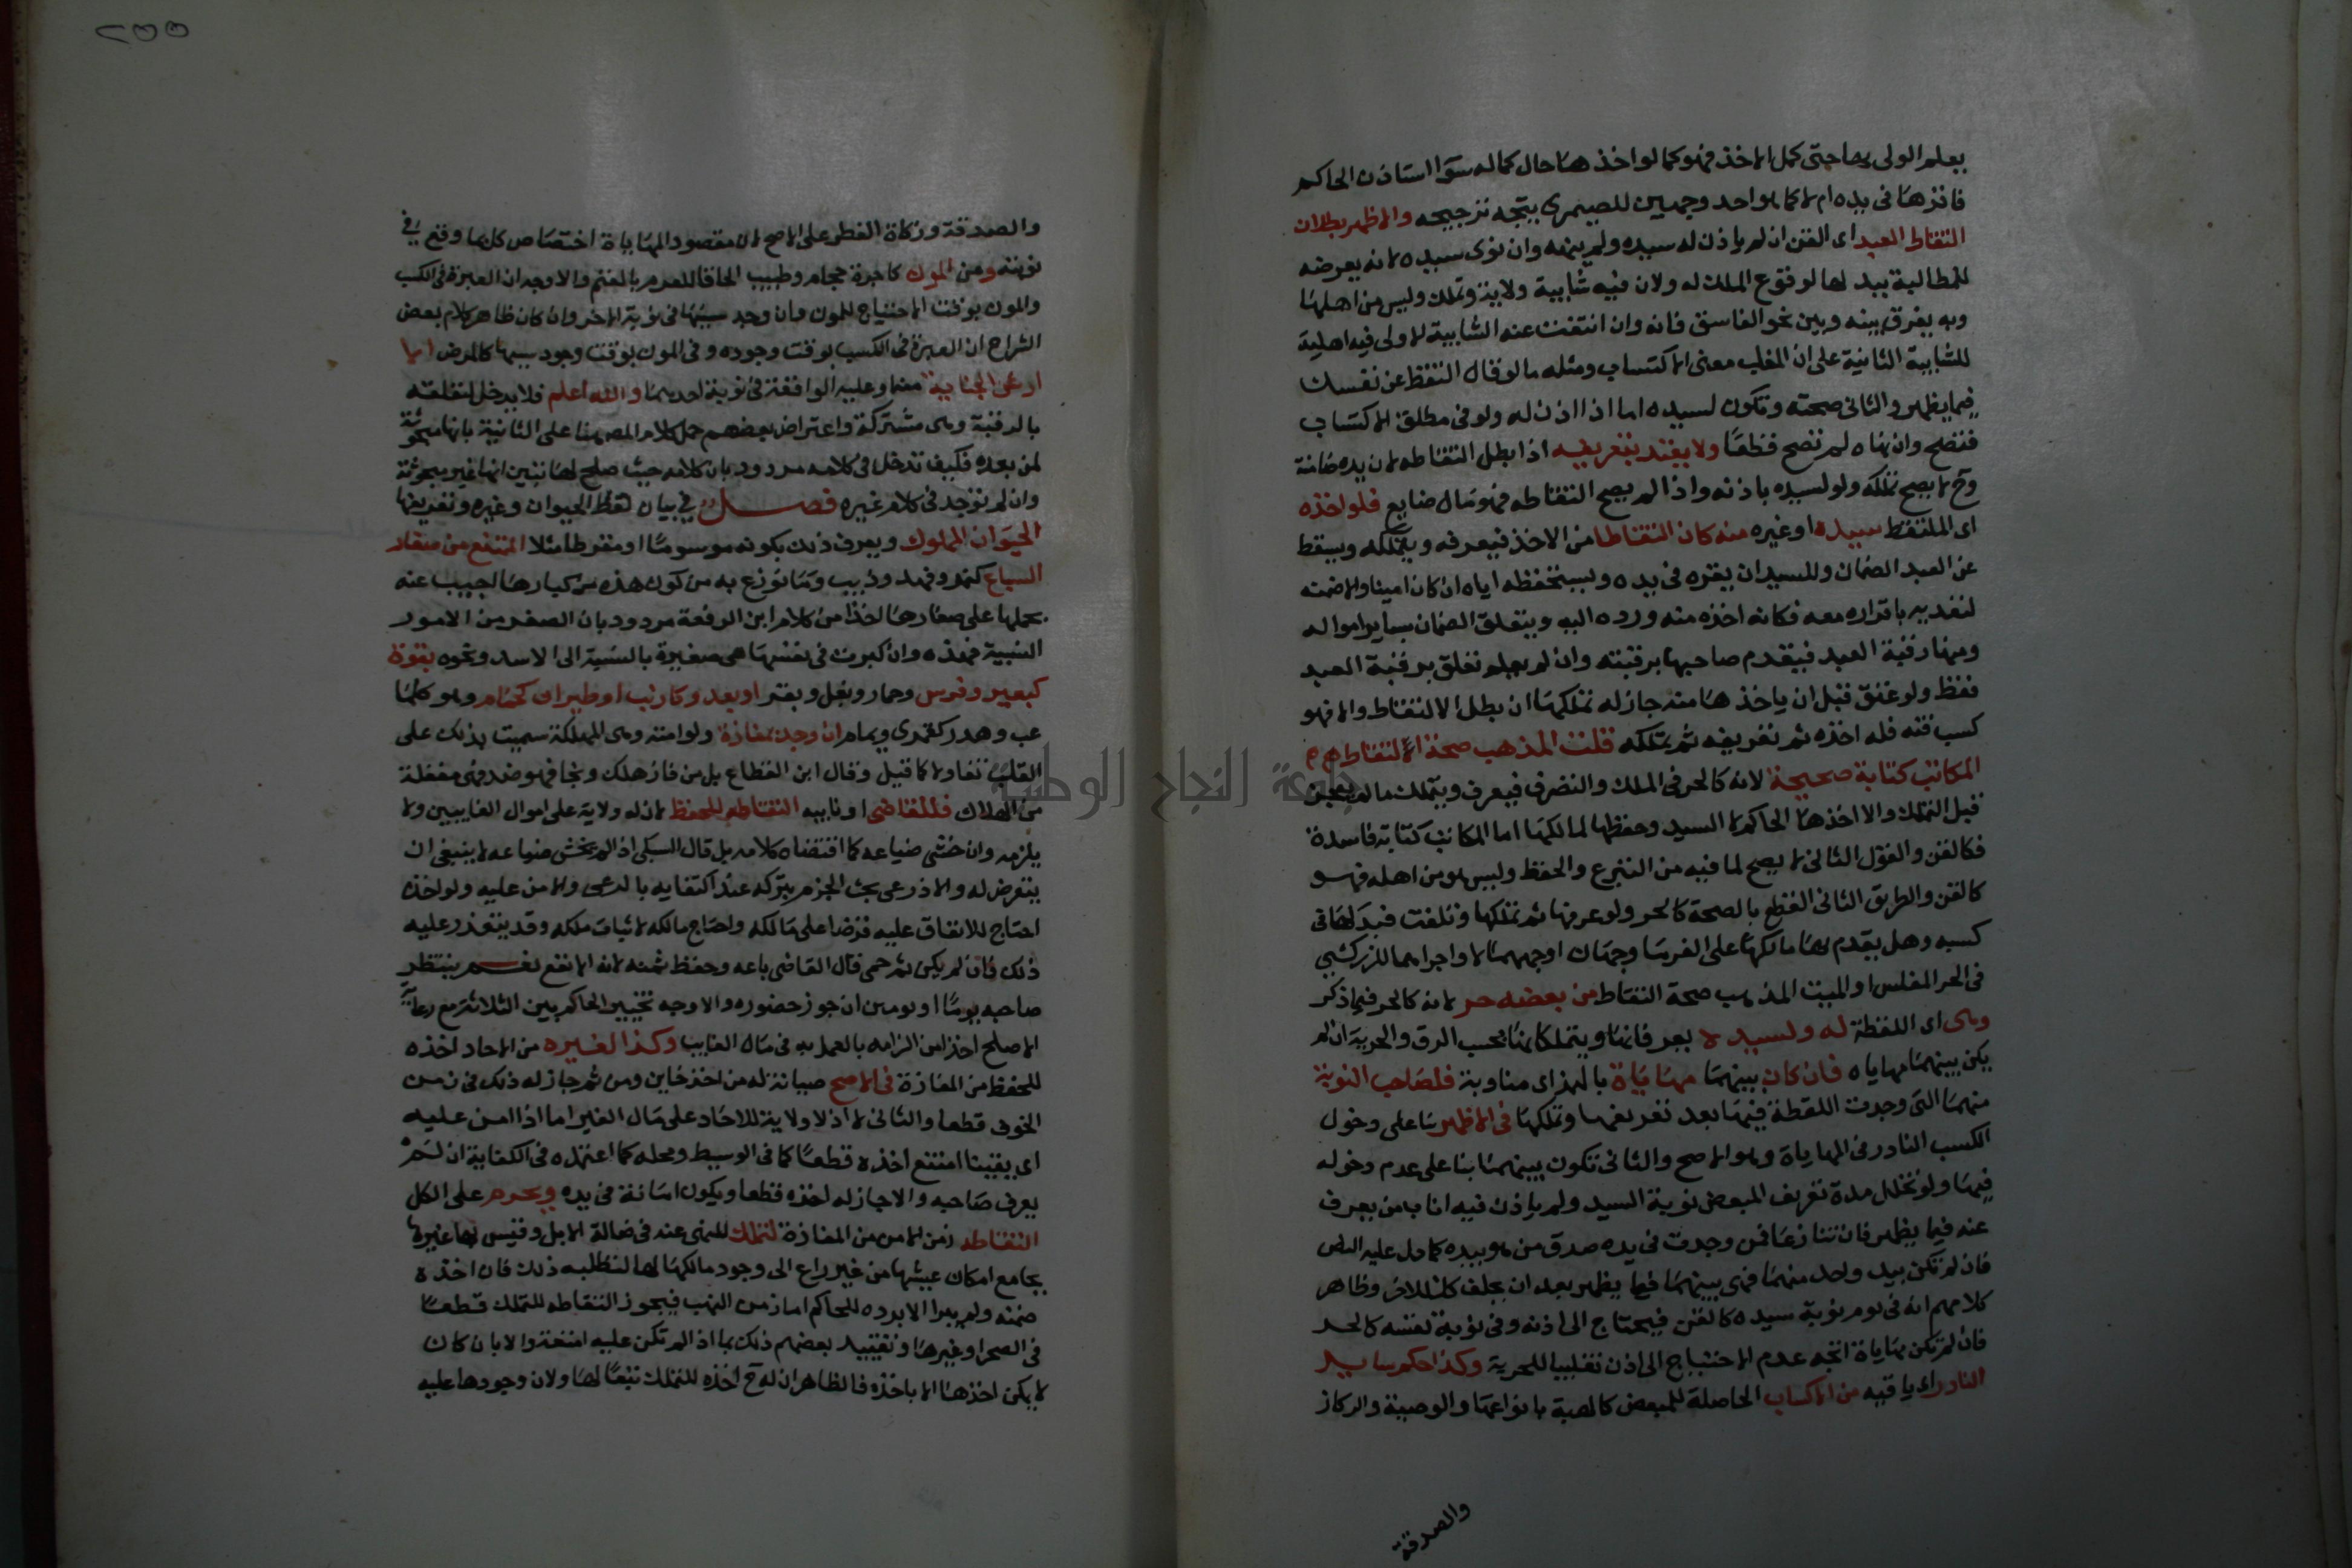 يعلم الولي بها حتى كمل الاخذ فهو كما لو اخذها حال كماله سوا استاذن الحاكم
فاقرها في يده ام لا كما هو احد وجهين للصيمري يتجه ترجيحه والاظهر بطلان
التقاط العبد اى القن ان لم ياذن له سيده ولم ينهه وان نوى سيده لانه يعرضه
للمطالبة ببدلها لوقوع الملك له ولان فيه شايبة ولاية وتملك وليس من اهلها
وبه يفرق بينه وبين نحو الفاسق فانه وان انتفت عنه الشايبة الاولى فيه اهلية
للشايبة الثانية على ان المغلب معنى الاكتساب ومثله ما لو قال التقط عن نفسك
فيما يظهر والثاني صحته وتكون لسيده اما اذا اذن له ولو في مطلق الاكتساب
فتصح وان نهاه لم تصح قطعا ولا يعتد بتعريفه اذا بطل التقاطه لان يده ضامنة
وح لا يصح تملكه ولو لسيده باذنه واذا لم يصح التقاطه فهو مال ضايع فلو اخذه
اى الملتقط سيده او غيره منه كان التقاطا من الاخذ فيعرفه ويتملكه ويسقط
عن العبد الضمان وللسيد ان يقره في يده ويستحفظه اياه ان كان امينا والا ضمنه
لتعديه باقراره معه فكانه اخذه منه ورده اليه ويتعلق الضمان بساير امواله
ومنها رقبة العبد فيقدم صاحبها برقبته وان لم يعلم تعلق برقبة العبد
فقط ولو عتق قبل ان ياخذها منه جاز له تملكها ان بطل الالتقاط والا فهو
كسب قنه فله اخذه ثم تعريفه ثم يتملكه قلت المذهب صحة الالتقاط
المكاتب كتابة صحيحة لانه كالحر في الملك والتصرف فيعرف ويتملك ما لم يعجز
قبل التملك والا اخذها الحاكم لا السيد وحفظها لمالكها اما المكاتب كتابة فاسدة
فكالقن والقول الثاني لا يصح لما فيه من التبرع والحفظ وليس هو من اهله فهو
كالقن والطريق الثاني القطع بالصحة كالحر ولو عرفها ثم تملكها وتلفت فبدلها في
كسبه وهل يقدم بها مالكها على الغرما وجهان اوجههما لا واجراهما الزركشي
في الحر المفلس او الميت المذهب صحة التقاط من بعضه حر لانه كالحر فيما ذكر
وهى اى اللقطة له ولسيده يعرفانها ويتملكانها بحسب الرق والحرية ان لم
يكن بينهما مهاياه فان كان بينهما مهاياة بالهمز اى مناوبة فلصاحب النوبة
منهما التى وجدت اللقطة فيها بعد تعريفها وتملكها في الاظهر بنا على دخول
الكسب النادر في المهاياة وهو الاصح والثاني تكون بينهما بنا على عدم دخوله
فيها ولو تخلل مدة تعريف المبعض نوبة السيد ولم ياذن فيه اناب من يعرف
عنه فيما يظهر فان تنازعا فمن وجدت في يده صدق من هو بيده كما دل عليه النص
فان لم تكن بيد واحد منهما فهى بينهما فيما يظهر بعد ان يحلف كل للاخر وظاهر
كلامهم انه في يوم نوبة سيده كالقن فيحتاج الى اذنه وفي نوبة نفسه كالحر
فان لم تكن مهاياة اتجه عدم الاحتياج الى اذن تغليبا للحرية وكذا حكم ساير
النادر اى باقيه من الاكساب الحاصلة للمبعض كالهبة بانواعها والوصية والركاز
والصدقة
والصدقة وزكاة الفطر على الاصح لان مقصود المهاياة اختصاص كل بما وقع في
نوبته ومن المون كاجرة حجام وطبيب الحاقا للغرم بالمغنم والاوجه ان العبرة في الكسب
والمون بوقت الاحتياج للمون وان وجد سببها في نوبة الاخر وان كان ظاهر كلام بعض
الشراح ان العبرة في الكسب بوقت وجوده وفي المون بوقت وجود سببها كالمرض الا
ارش الجناية منه وعليه الواقعة في نوبة احدهما والله اعلم فلا يدخل لتعلقه
بالرقبة وهى مشتركة واعتراض بعضهم حمل كلام المصنف على الثانية بانها مبحوثة
لمن بعده فكيف تدخل في كلامه مردود بان كلامه حيث صلح لها تبين انها غير مبحوثة
وان لم توجد في كلام غيره فصل في بيان لقط الحيوان وغيره وتعريفها
الحيوان المملوك ويعرف ذلك بكونه موسوما او مقرطا مثلا الممتنع من صغار
السباع كنمر وفهد وذيب وما نوزع به من كون هذه من كبارها اجيب عنه
بحملها على صغارها اخذا من كلام ابن الرفعة مردود بان الصغر من الامور
النسبية فهذه وان كبرت في نفسها هى صغيرة بالنسبة الى الاسد ونحوه بقوة
كبعير وفرس وحمار وبغل وبقر او بعدو كارنب او طيران كحمام وهو كلما
عب وهدر كقمري ويمام ان وجد بمفازة ولو امنة وهى المهلكة سميت بذلك على
القلب تفاولا كما قيل وقال ابن القطاع بل من فاز هلك ونجا فهو ضد فهى مفعلة
من الهلاك فللقاضى او نايبه التقاطه للحفظ لان له ولاية على اموال الغايبين ولا
يلزمه وان خشى ضياعه كما اقتضاه كلامه بل قال السبكي اذا لم يخش ضياعه لا ينبغي ان
يتعرض له والاذرعى بحث الجزم بتركه عند اكتفايه بالرعى والامن عليه ولو اخذه
احتاج للانفاق عليه قرضا على مالكه واحتاج مالكه لاثبات ملكه وقد يتعذر عليه
ذلك فان لم يكن ثم حمى قال القاضى باعه وحفظ ثمنه لانه الانفع نعم ينتظر
صاحبه يوما او يومين ان جوز حضوره والاوجه تخيير الحاكم بين الثلاثة مع رعاية
الاصلح اخذا من الزامه بالعمل به في مال الغايب وكذا لغيره من الاحاد اخذه
للحفظ من المفازة في الاصح صيانة له من اخذ خاين ومن ثم جاز له ذلك في زمن
الخوف قطعا والثاني لا اذ لا ولاية للاحاد على مال الغير اما اذا امن عليه
اى يقينا امتنع اخذه قطعا كما في الوسيط ومحله كما اعتمده في الكفاية ان لم
يعرف صاحبه والا جاز له اخذه قطعا ويكون امانة في يده ويحرم على الكل
التقاطه زمن الامن من المفازة لتملك للنهى عنه في ضالة الابل وقيس بها غيرها
بجامع امكان عيشها من غير راع الى وجود مالكها لها لتطلبه ذلك فان اخذه
ضمنه ولم يبرا الا برده للحاكم اما زمن النهب فيجوز التقاطه للتملك قطعا
في الصحرا وغيرها وتقييد بعضهم ذلك بما اذا لم تكن عليه امتعة والا بان كان
لا يمكن اخذها الا باخذه فالظاهر ان له ح اخذه للتملك تبعا لها ولان وجودها عليه
٢٥٥
جامعة النجاح الوطنية